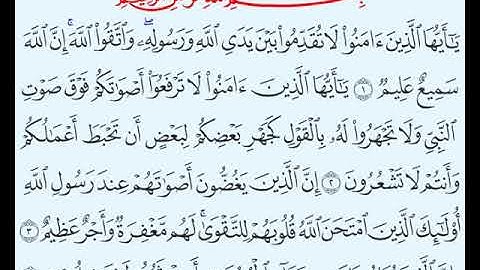 يَـٰٓأَيُّهَا ٱلَّذِينَ ءَامَنُوا۟ لَا تُقَدِّمُوا۟ بَيْنَ يَدَىِ ٱللَّهِ وَرَسُولِهِۦ ۖ وَٱتَّقُوا۟ ٱللَّهَ ۚ إِنَّ ٱللَّهَ
سَمِيعٌ عَلِيمٌ ١ يَـٰٓأَيُّهَا ٱلَّذِينَ ءَامَنُوا۟ لَا تَرْفَعُوٓا۟ أَصْوَٰتَكُمْ فَوْقَ صَوْتِ
ٱلنَّبِىِّ وَلَا تَجْهَرُوا۟ لَهُۥ بِٱلْقَوْلِ كَجَهْرِ بَعْضِكُمْ لِبَعْضٍ أَن تَحْبَطَ أَعْمَـٰلُكُمْ
وَأَنتُمْ لَا تَشْعُرُونَ ٢ إِنَّ ٱلَّذِينَ يَغُضُّونَ أَصْوَٰتَهُمْ عِندَ رَسُولِ ٱللَّهِ
أُو۟لَـٰٓئِكَ ٱلَّذِينَ ٱمْتَحَنَ ٱللَّهُ قُلُوبَهُمْ لِلتَّقْوَىٰ ۚ لَهُم مَّغْفِرَةٌ وَأَجْرٌ عَظِيمٌ ٣